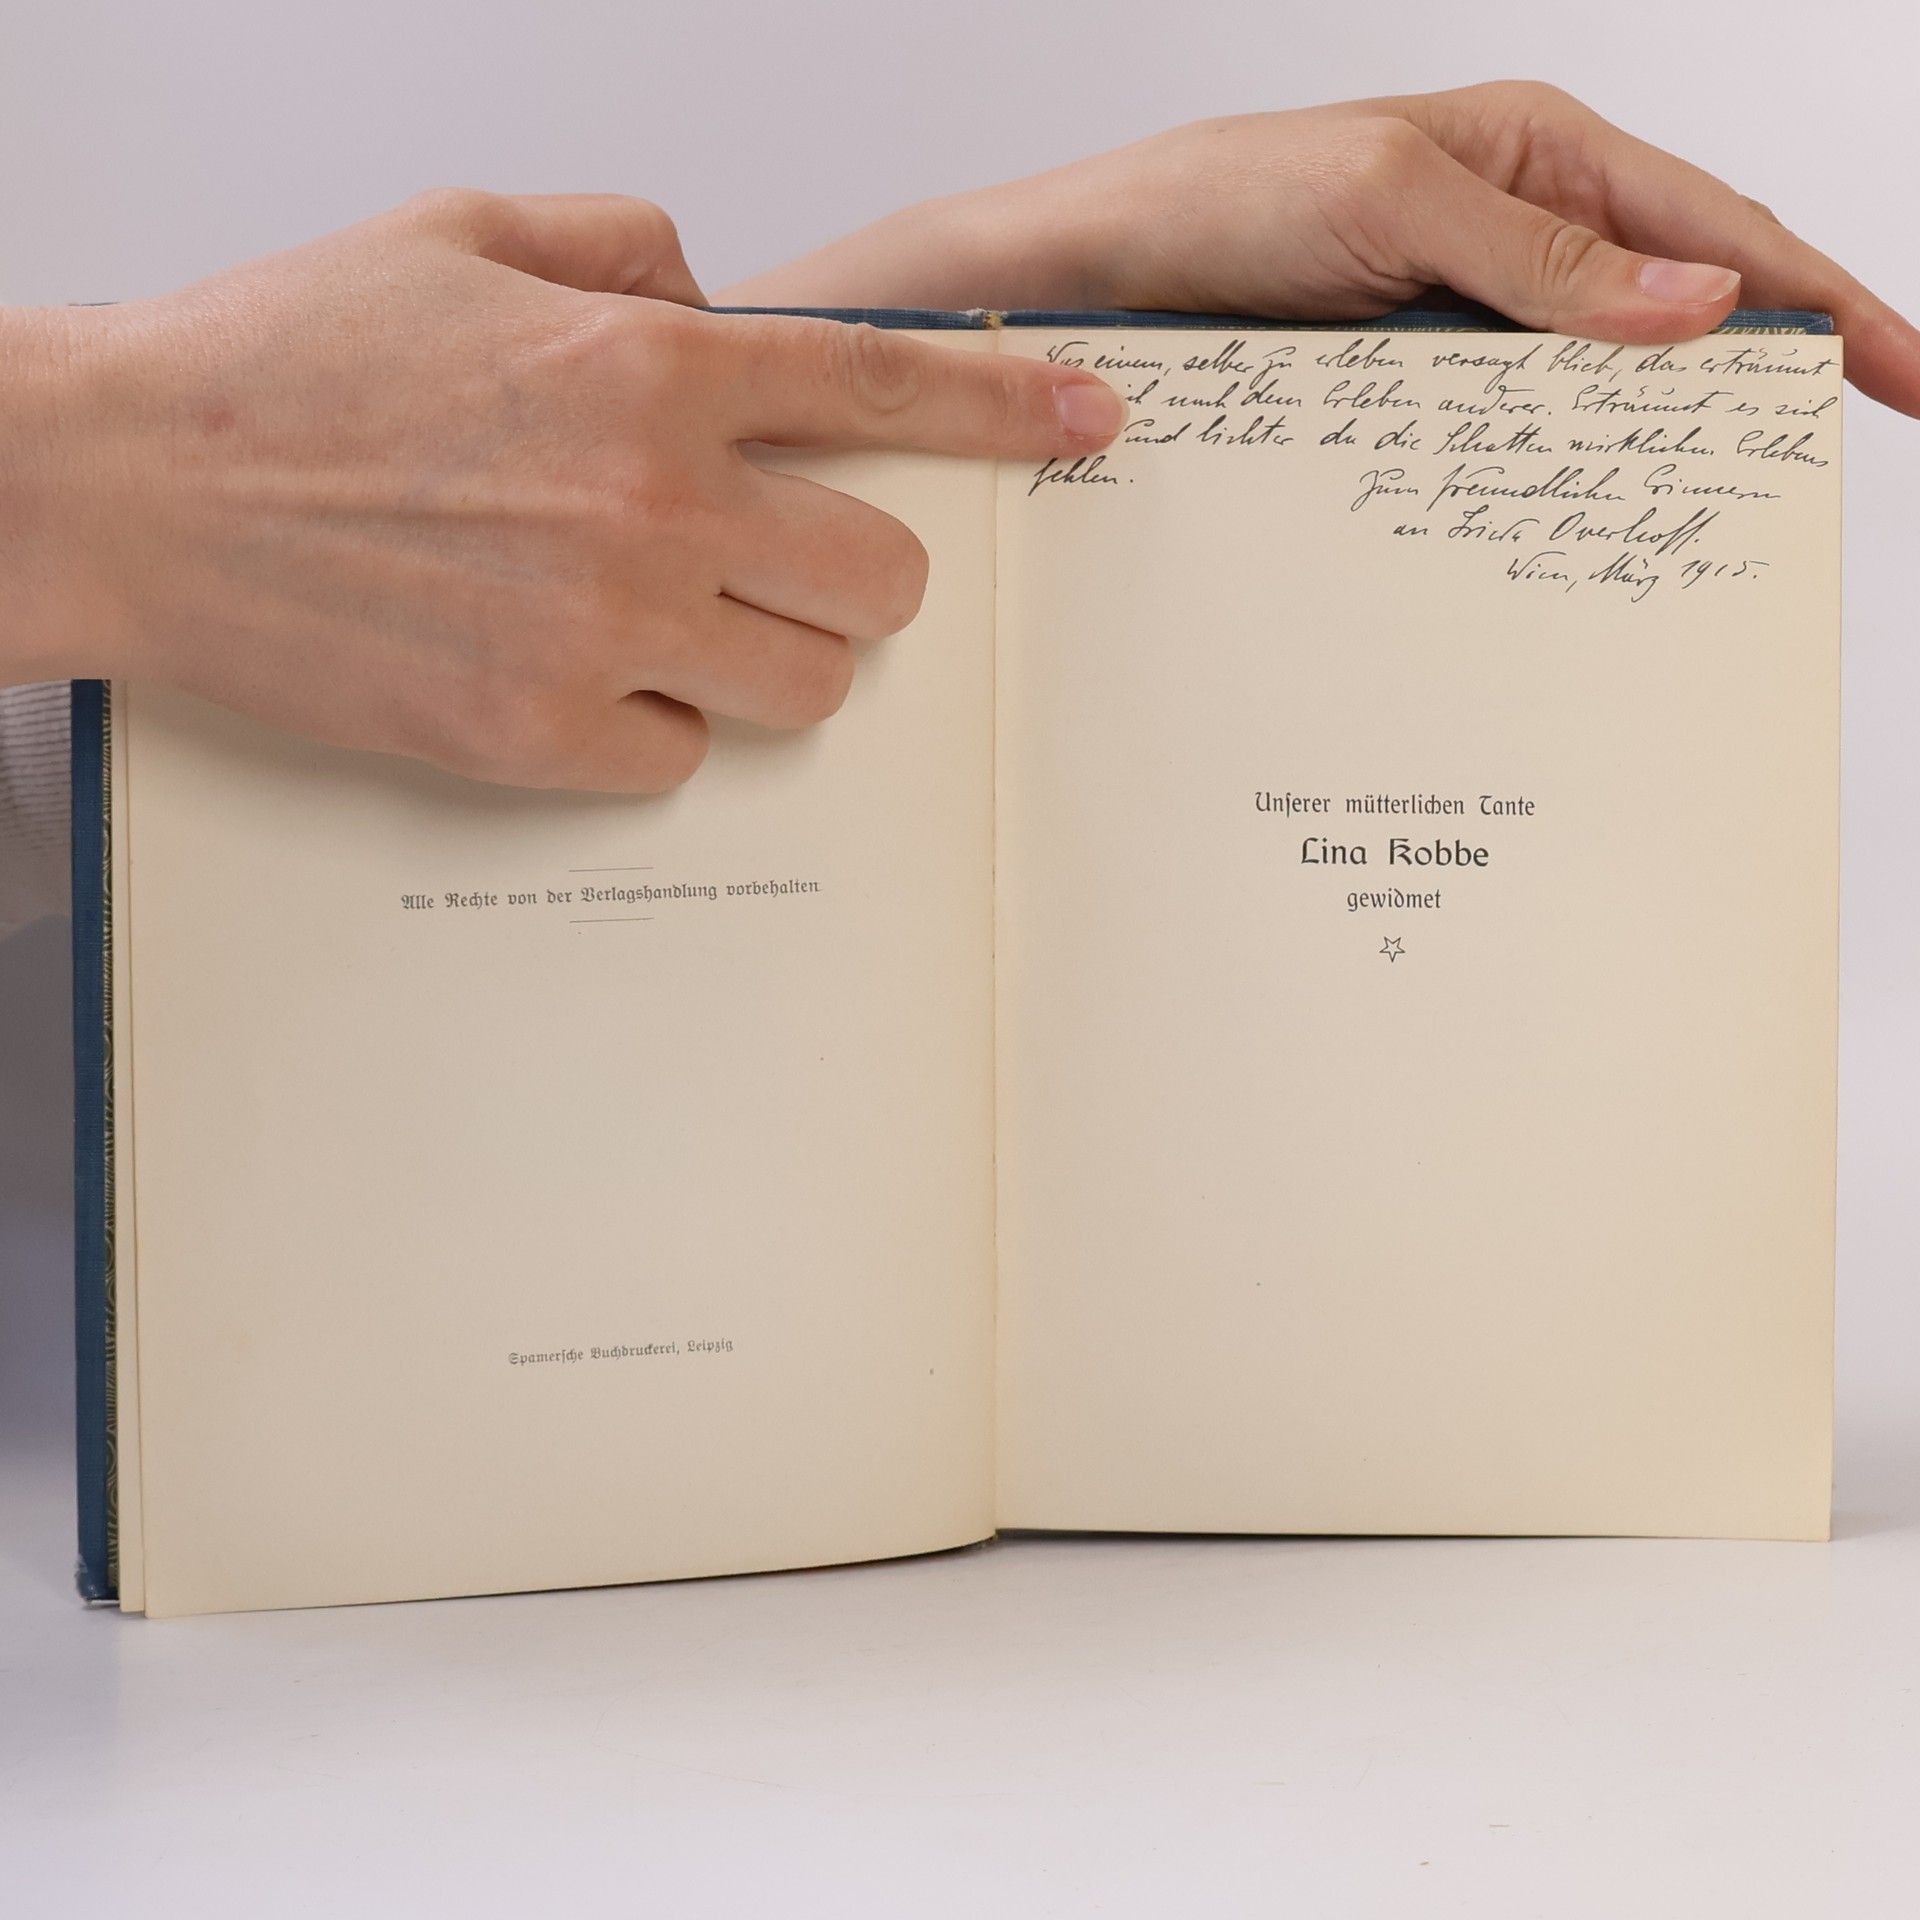 Alle Rechte von der Verlagshandlung vorbehalten
Spamersche Buchdruckerei, Leipzig
Was einem, selber zu erleben versagt blieb, das erträumt
nach dem Erleben anderer. Erträumt es sich
und lichter da die Schatten wirklichen Erlebens
fehlen.
Zum freundlichen Erinnern
an Frieda Overhoff.
Wien, März 1915.
Unserer mütterlichen Tante
Lina Kobbe
gewidmet